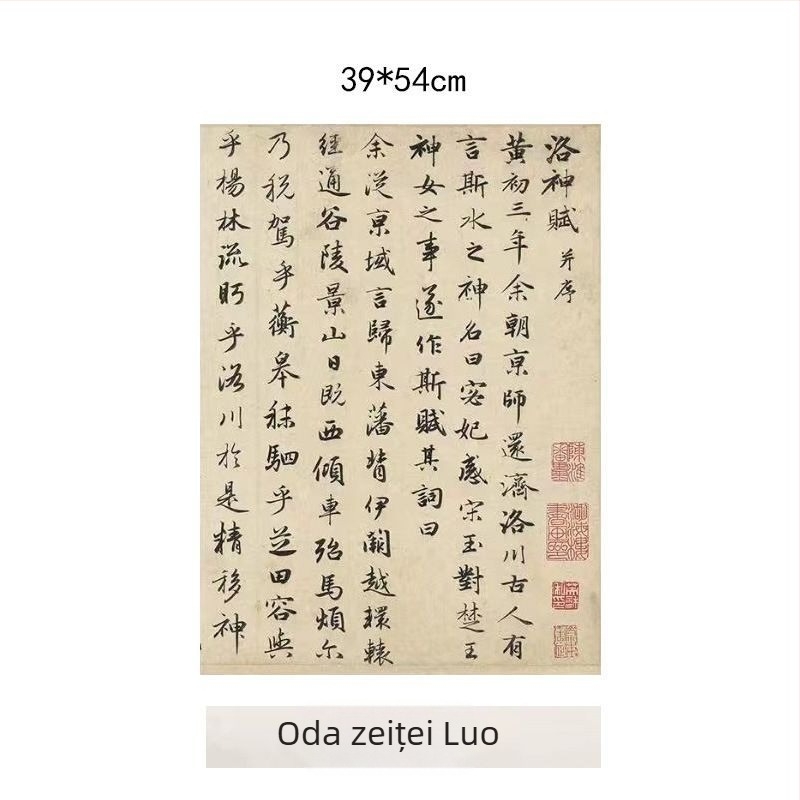 39*54cm
洛神賦 并序
黃初三年余朝京師還濟洛川古人有
言斯水之神名曰宓妃感宋玉對楚王
神女之事遂作斯賦其詞曰
余從京域言歸東藩背伊闕越轘轅
經通谷陵景山日既西傾車殆馬煩尒
乃稅駕乎蘅皋秣駟乎芝田容與
乎楊林流眄乎洛川於是精移神
Oda zeiței Luo